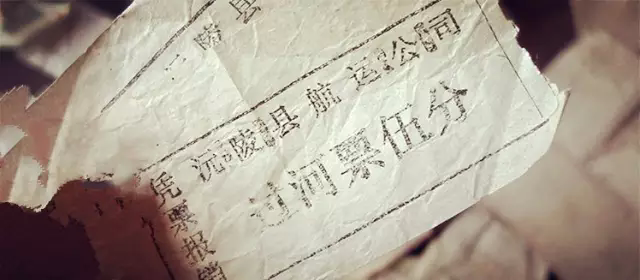 陵县
沅陵县航运公司
过河票伍分
凭票报销